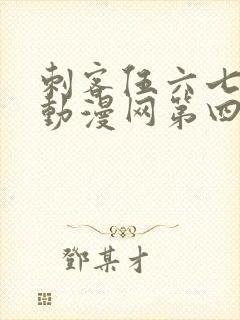 刺客伍六七
動漫网第四
鄧某才